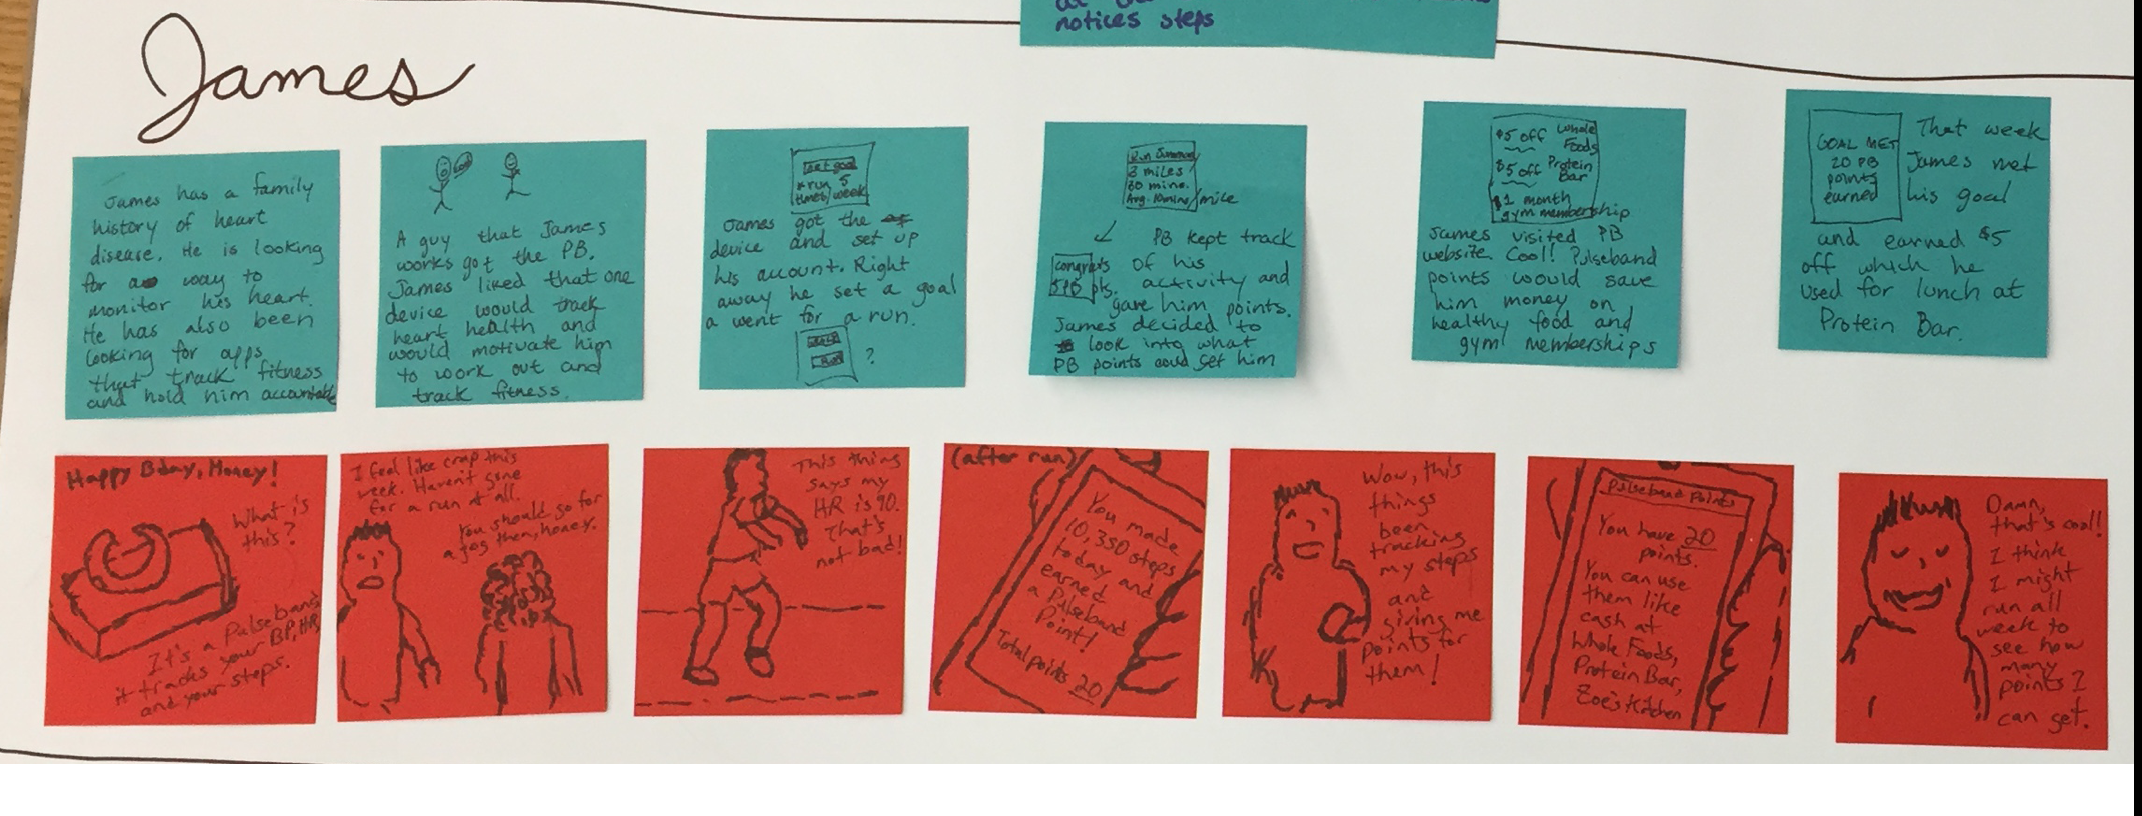 notices steps
James
James has a family
history of heart
disease. He is looking
for a way to
monitor his heart.
He has also been
looking for apps
that track fitness
and hold him accountable
A guy that James
works got the PB.
James liked that one
device would track
heart health and
would motivate him
to work out and
track fitness.
set goal
run 5
times/week
James got the
device and set up
his account. Right
away he set a goal
a went for a run.
?
Run Summary
3 miles
30 mins.
Avg. 10mins/mile
PB kept track
of his
activity and
gave him points.
congrats
5 PB pts.
James decided to
look into what
PB points could get him
$5 off Whole
Foods
$5 off Protein
Bar
$1 month
gym membership
James visited PB
website. Cool! Pulseband
points would save
him money on
healthy food and
gym memberships
GOAL MET
20 PB
points
earned
That week
James met
his goal
and earned $5
off which he
used for lunch at
Protein Bar.
Happy Bday, Honey!
What is
this?
It's a Pulseband
it tracks your BP, HR,
and your steps.
I feel like crap this
week. Haven't gone
for a run at all.
You should go for
a jog then, honey.
This thing
says my
HR is 90.
That's
not bad!
(after run)
You made
10,350 steps
today and
earned
a Pulseband
Point!
Total points 20
Wow, this
things
been
tracking
my steps
and
giving me
points for
them!
Pulseband Points
You have 20
points.
You can use
them like
cash at
Whole Foods,
Protein Bar,
Zoe's Kitchen
Damn,
that's cool!
I think
I might
run all
week to
see how
many
points I
can get.